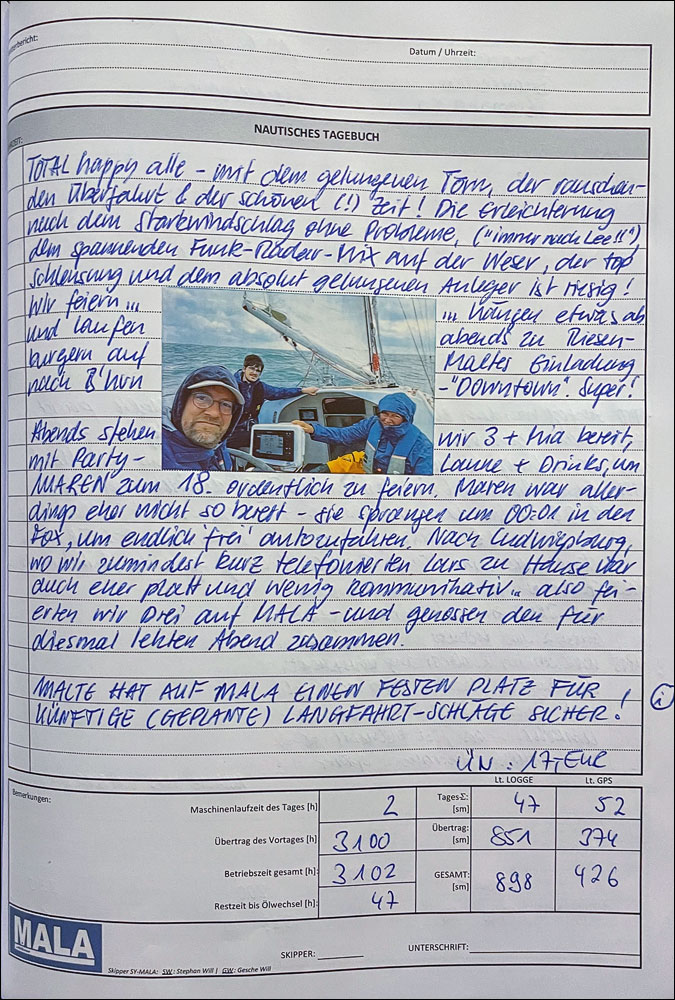 Datum / Uhrzeit:
NAUTISCHES TAGEBUCH
TOTAL happy alle - mit dem gelungenen Törn, der rauschen-
den Überfahrt & der schönen (!) Zeit! Die Erleichterung
nach dem Starkwindschlag ohne Probleme, ("immer nach Lee!!")
dem spannenden Funk-Radar-Mix auf der Weser, der top
Schleusung und dem absolut gelungenen Anleger ist riesig!
Wir feiern ... ... hängen etwas ab
und laufen abends zu Riesen-
burgern auf Maltes Einladung
nach B'hvn - "Downtown". Super!
Abends stehen wir 3 + Mia bereit,
mit Party- Laune + Drinks, um
MAREN zum 18. ordentlich zu feiern. Maren war aller-
dings eher nicht so bereit - sie sprangen um 00:01 in den
Fox, um endlich 'frei' autozufahren. Nach Ludwigsburg,
wo wir zumindest kurz telefonierten Lars zu Hause war
auch eher platt und wenig kommunikativ.. also fei-
erten wir Drei auf MALA - und genossen den für
diesmal letzten Abend zusammen.
MALTE HAT AUF MALA EINEN FESTEN PLATZ FÜR
KÜNFTIGE (GEPLANTE) LANGFAHRT-SCHLÄGE SICHER! i
ÜN : 17,- EUR
Lt. LOGGE Lt. GPS
Bemerkungen:
Maschinenlaufzeit des Tages [h] 2 Tages-Σ: [sm] 47 52
Übertrag des Vortages [h]: 3100 Übertrag: [sm] 851 374
Betriebszeit gesamt [h]: 3102 GESAMT: [sm] 898 426
Restzeit bis Ölwechsel [h]: 47
MALA
SKIPPER: UNTERSCHRIFT:
Skipper SY-MALA: SW: Stephan Will | GW: Gesche Will